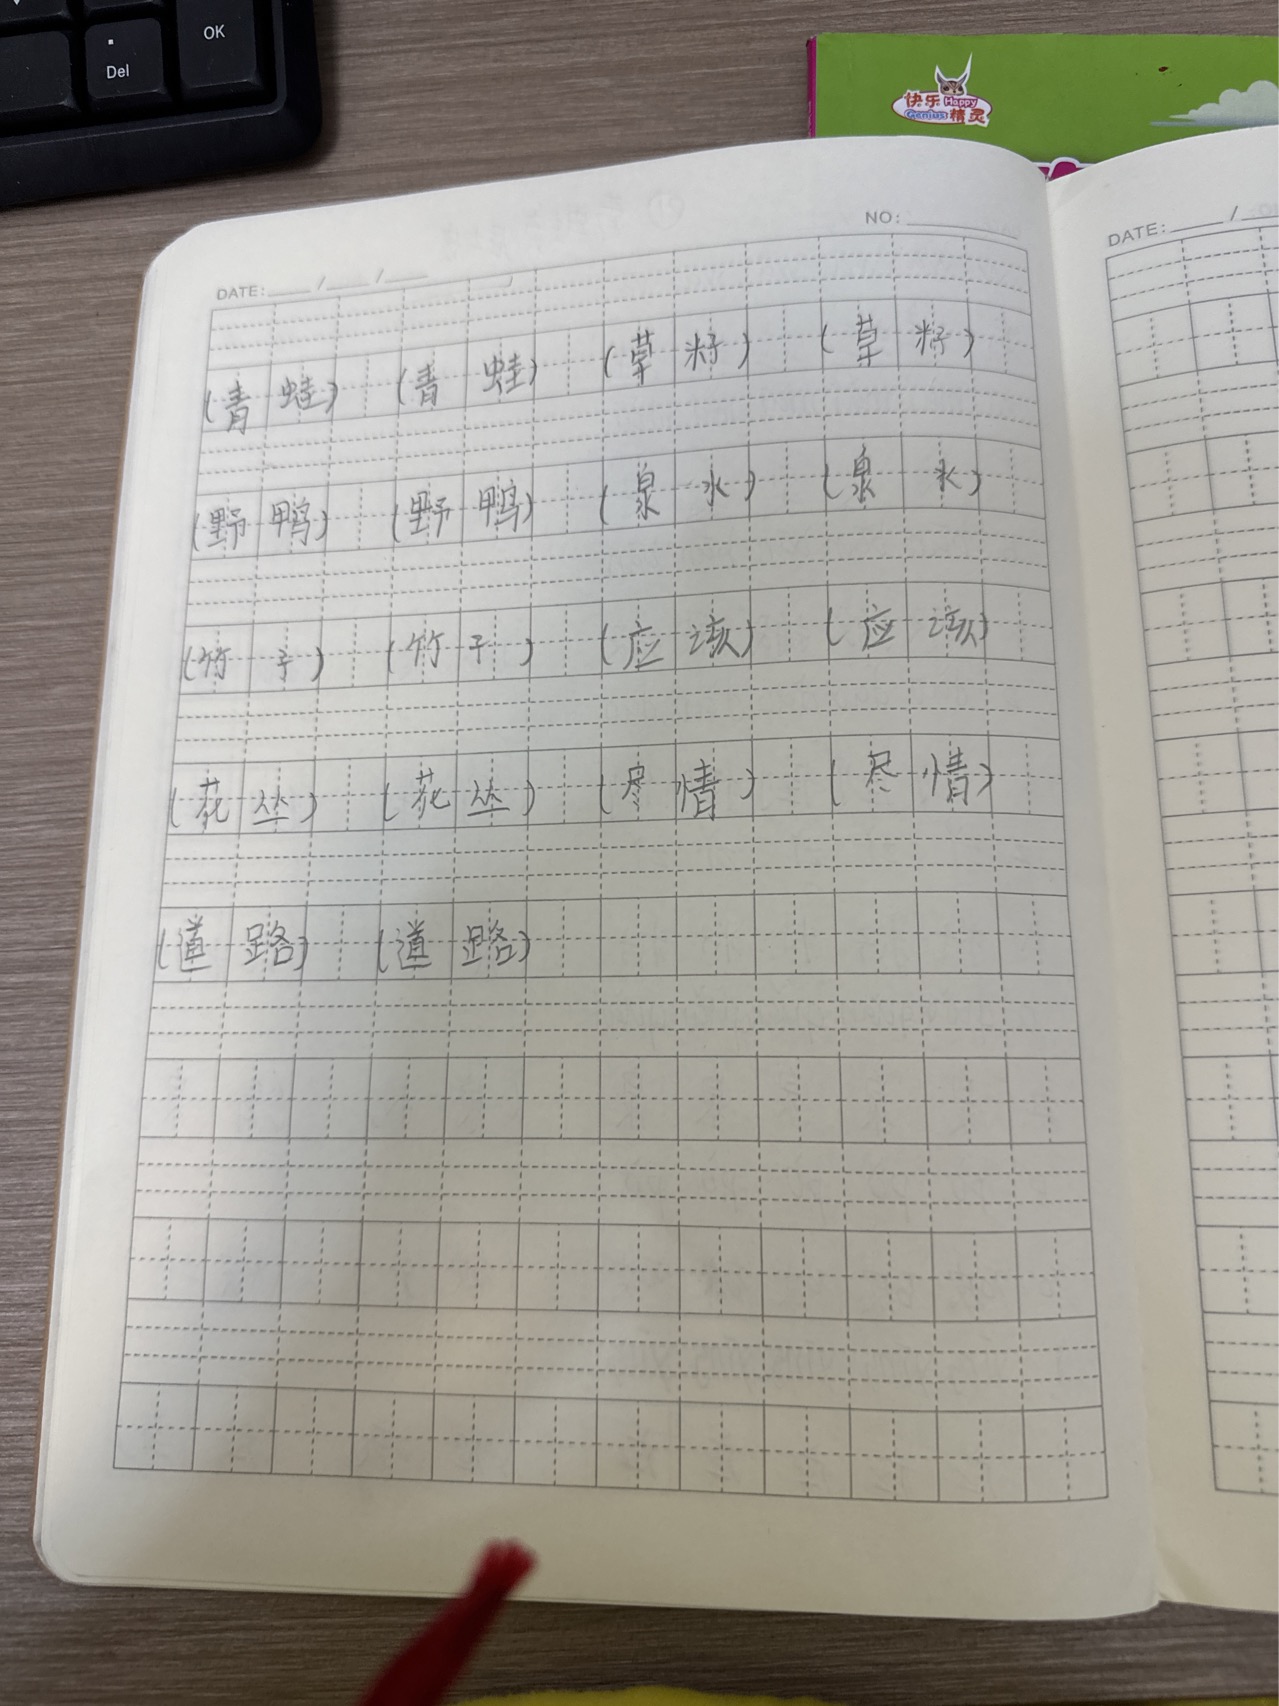 OK
Del
快乐 Happy
Genius 精灵
NO:
DATE: / /
DATE: /
(青蛙) (青蛙) (草籽) (草籽)
(野鸭) (野鸭) (泉水) (泉水)
(竹子) (竹子) (应该) (应该)
(花丛) (花丛) (尽情) (尽情)
(道路) (道路)